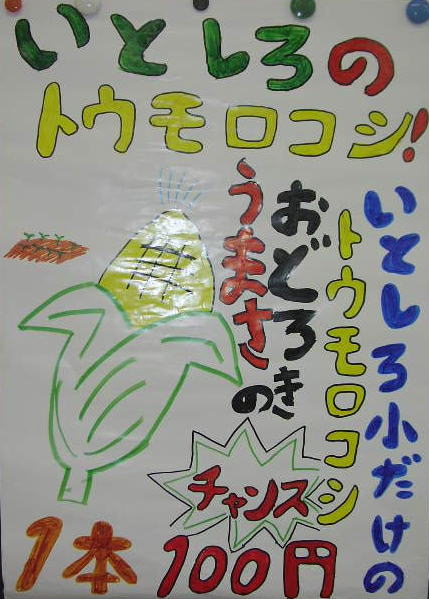 いとしろの
トウモロコシ！
いとしろ小だけの
トウモロコシ
おどろき
うまさの
チャンス
1本 100円